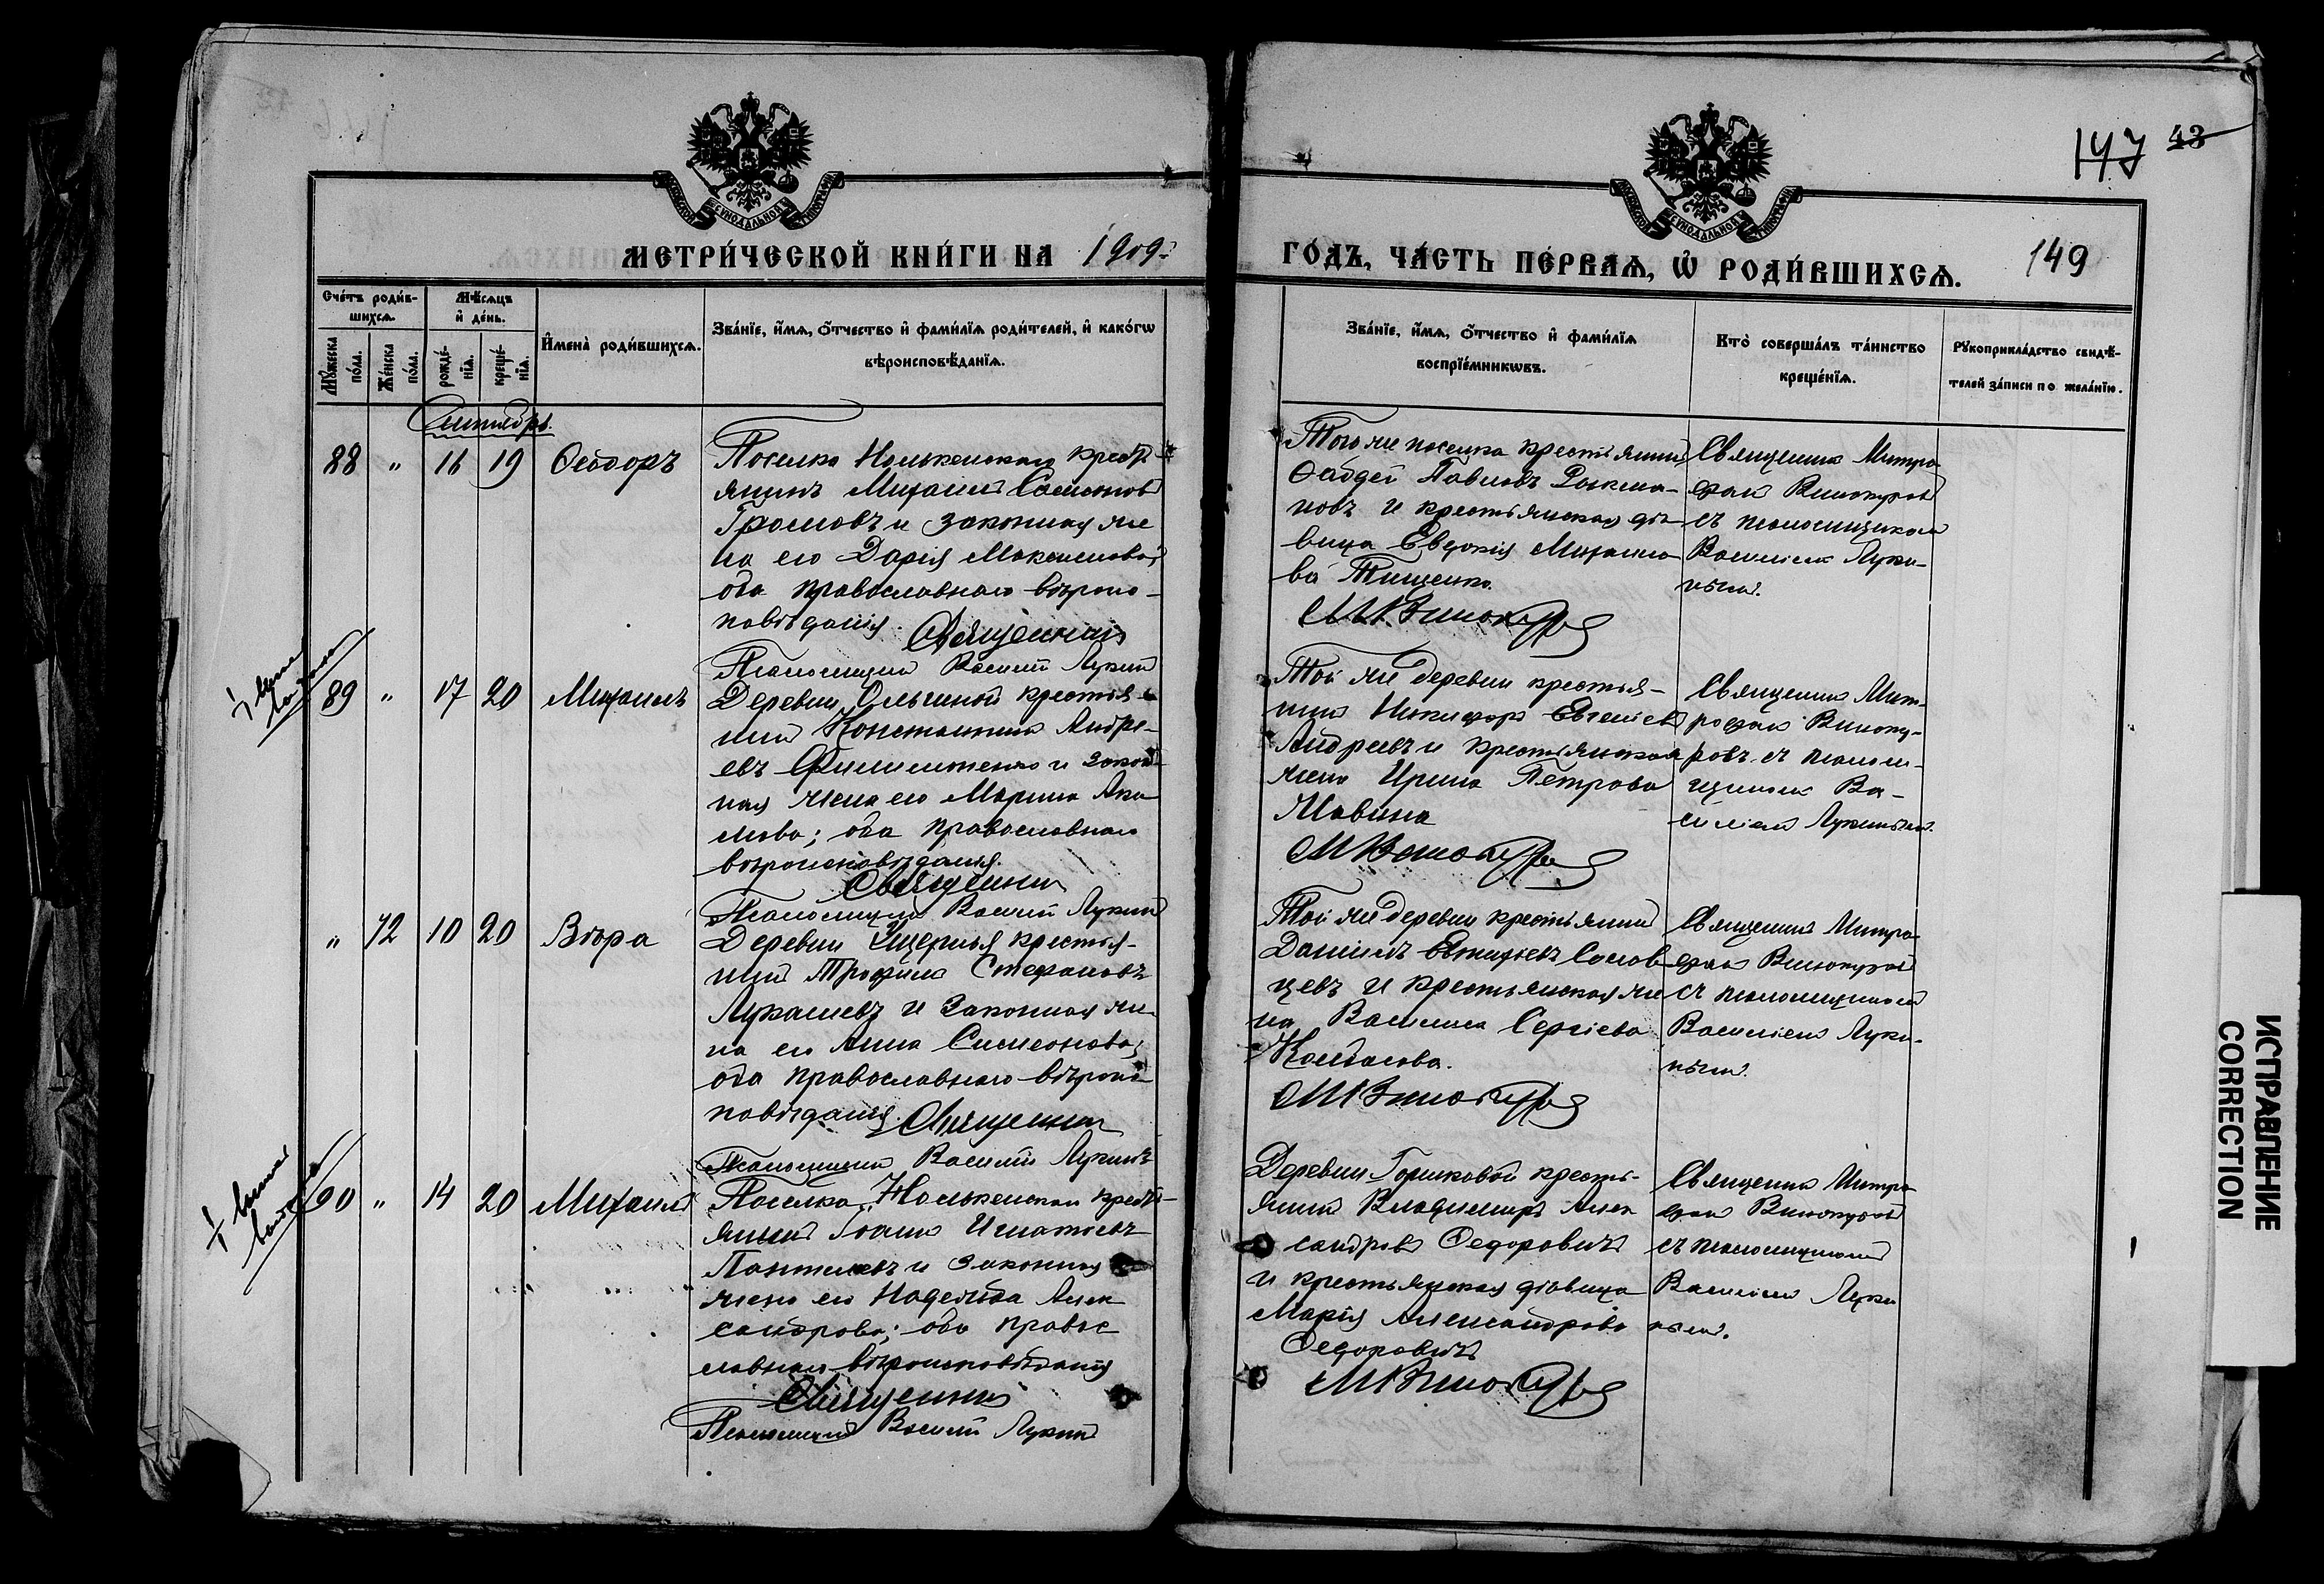 147 43
МЕТРИ́ЧЕСКОЙ КНИ́ГИ НА 1909.
ГО́ДЪ, ЧА́СТЬ ПЕ́РВАѦ, Ѡ҆ РОДИ́ВШИХСѦ.
149
Сче́тъ роди́в-
шихсѧ.
Мѣ́сѧцъ
и҆ де́нь.
Мꙋ́жеска
по́ла.
Же́нска
по́ла.
рожде́-
нїѧ.
креще́-
нїѧ.
И҆мена̀ роди́вшихсѧ.
Зва́нїе, и҆́мѧ, ѻ҆́тчество и҆ фами́лїѧ роди́телей, и҆ како́гѡ
вѣроисповѣ́данїѧ.
Зва́нїе, и҆́мѧ, ѻ҆́тчество и҆ фами́лїѧ
воспрїе́мникѡвъ.
Кто̀ соверша́лъ та́инство
креще́нїѧ.
Рꙋкоприкла́дство свидѣ́-
телей за́писи по жела́нїю.
Сентябрь.
88 " 16 19 Ѳеодоръ
Поселка крестья
янинъ Михаилъ
Громовъ и законная же
на его Дарія Максимова;
оба православнаго вѣроис-
повѣданія. Священникъ
Псаломщикъ Василій Лукинъ
Того же поселка крестьянинъ
Ѳаддей Павловъ
новъ и крестьянская дѣ-
вица Евдокія Михаило
ва Тищенко.
М Винокуровъ
Священникъ Митро
фанъ Винокуровъ
съ псаломщикомъ
Василіемъ Луки-
нымъ.
89 " 17 20 Михаилъ
Деревни Ольгиной крестья-
нинъ Константинъ Андре-
евъ и закон-
ная жена его Марина Аки
мова; оба православнаго
вѣроисповѣданія.
Священникъ
Псаломщикъ Василій Лукинъ
Той же деревни крестья-
нинъ Никифоръ
Андреевъ и крестьянская
жена Ирина Петрова
М Винокуровъ
Священникъ Мит-
рофанъ Виноку-
ровъ съ псалом-
щикомъ Ва-
силіемъ Лукинымъ.
" 72 10 20 Вѣра
Деревни крестья-
нинъ Трофимъ Стефановъ
Лукашевъ и законная же
на его Анна Симеонова;
оба православнаго вѣроис-
повѣданія. Священникъ
Псаломщикъ Василій Лукинъ
Той же деревни крестьянинъ
Даніилъ
цевъ и крестьянская же
на Василиса Сергіева
М Винокуровъ
Священникъ Митро-
фанъ Винокуровъ
съ псаломщикомъ
Василіемъ Луки-
нымъ.
90 " 14 20 Михаилъ
Поселка крестья-
янинъ Іоаннъ Игнатьевъ
и законная
жена его Надежда Алек
сандрова; оба правос
лавнаго вѣроисповѣданія
Священникъ
Псаломщикъ Василій Лукинъ
Деревни Горшковой кресть-
янинъ Владимиръ Алек
сандровъ Ѳедоровичъ
и крестьянская дѣвица
Марія Александрова
Ѳедоровичъ
М Винокуровъ
Священникъ Митро
фанъ Винокуровъ
съ псаломщикомъ
Василіемъ Луки
нымъ.
ИСПРАВЛЕНИЕ
CORRECTION